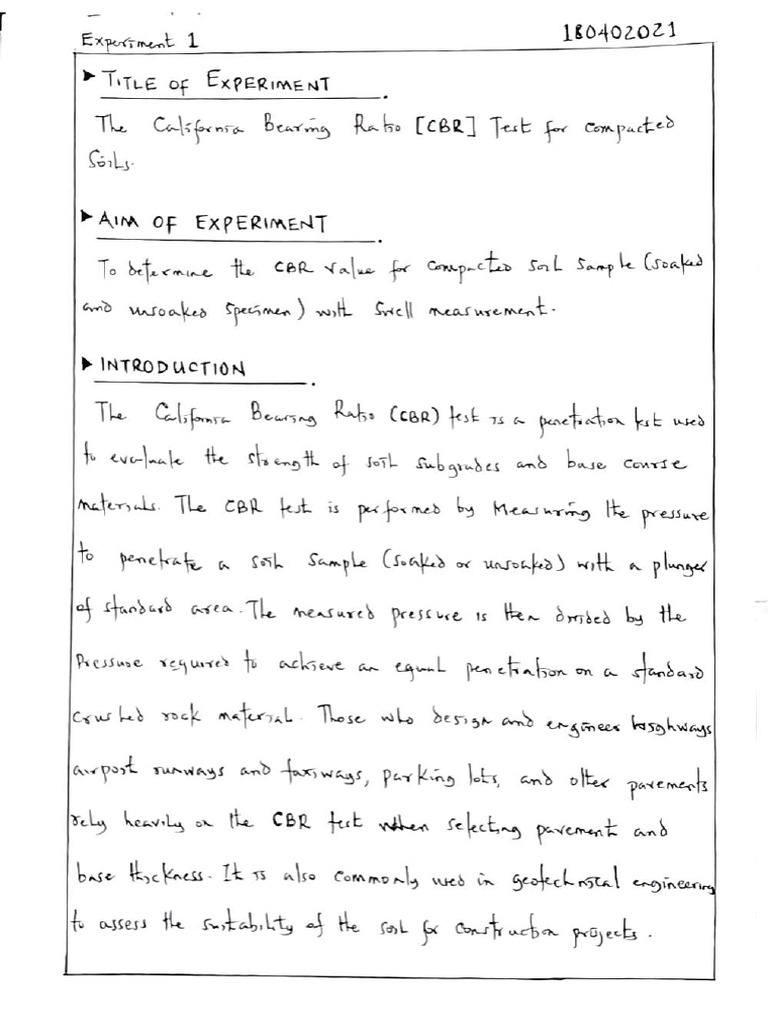 Experiment 1
180402021
➤ TITLE OF EXPERIMENT.
The California Bearing Ratio [CBR] Test for compacted
Soils.
➤ AIM OF EXPERIMENT.
To determine the CBR value for compacted soil sample (soaked
and unsoaked specimen) with swell measurement.
➤ INTRODUCTION.
The California Bearing Ratio (CBR) test is a penetration test used
to evaluate the strength of soil subgrades and base course
materials. The CBR test is performed by Measuring the pressure
to penetrate a soil sample (soaked or unsoaked) with a plunger
of standard area. The measured pressure is then divided by the
Pressure required to achieve an equal penetration on a standard
crushed rock material. Those who design and engineer highways
airport runways and taxiways, parking lots, and other pavements
rely heavily on the CBR test when selecting pavement and
base thickness. It is also commonly used in geotechnical engineering
to assess the suitability of the soil for construction projects.